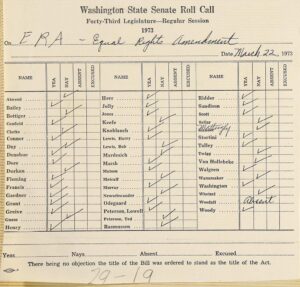 Washington State Senate Roll Call
Forty-Third Legislature—Regular Session
1973
On ERA - Equal Rights Amendment
Date March 22, 1973
NAME YEA NAY ABSENT EXCUSED NAME YEA NAY ABSENT EXCUSED NAME YEA NAY ABSENT EXCUSED
Atwood Herr Ridder
Bailey Jolly Sandison
Bottiger Jones Scott
Canfield Keefe Sellar
Clarke Knoblauch
Connor Lewis, Harry Stortini
Day Lewis, Bob Talley
Donohue Mardesich Twigg
Dore Marsh Van Hollebeke
Durkan Matson Walgren
Fleming Metcalf Wanamaker
Francis Murray Washington
Gardner Newschwander Whetzel
Grant Odegaard Woodall Absent
Greive Peterson, Lowell Woody
Guess Peterson, Ted
Henry Rasmussen
Yeas Nays Absent Excused
There being no objection the title of the Bill was ordered to stand as the title of the Act.
29-19